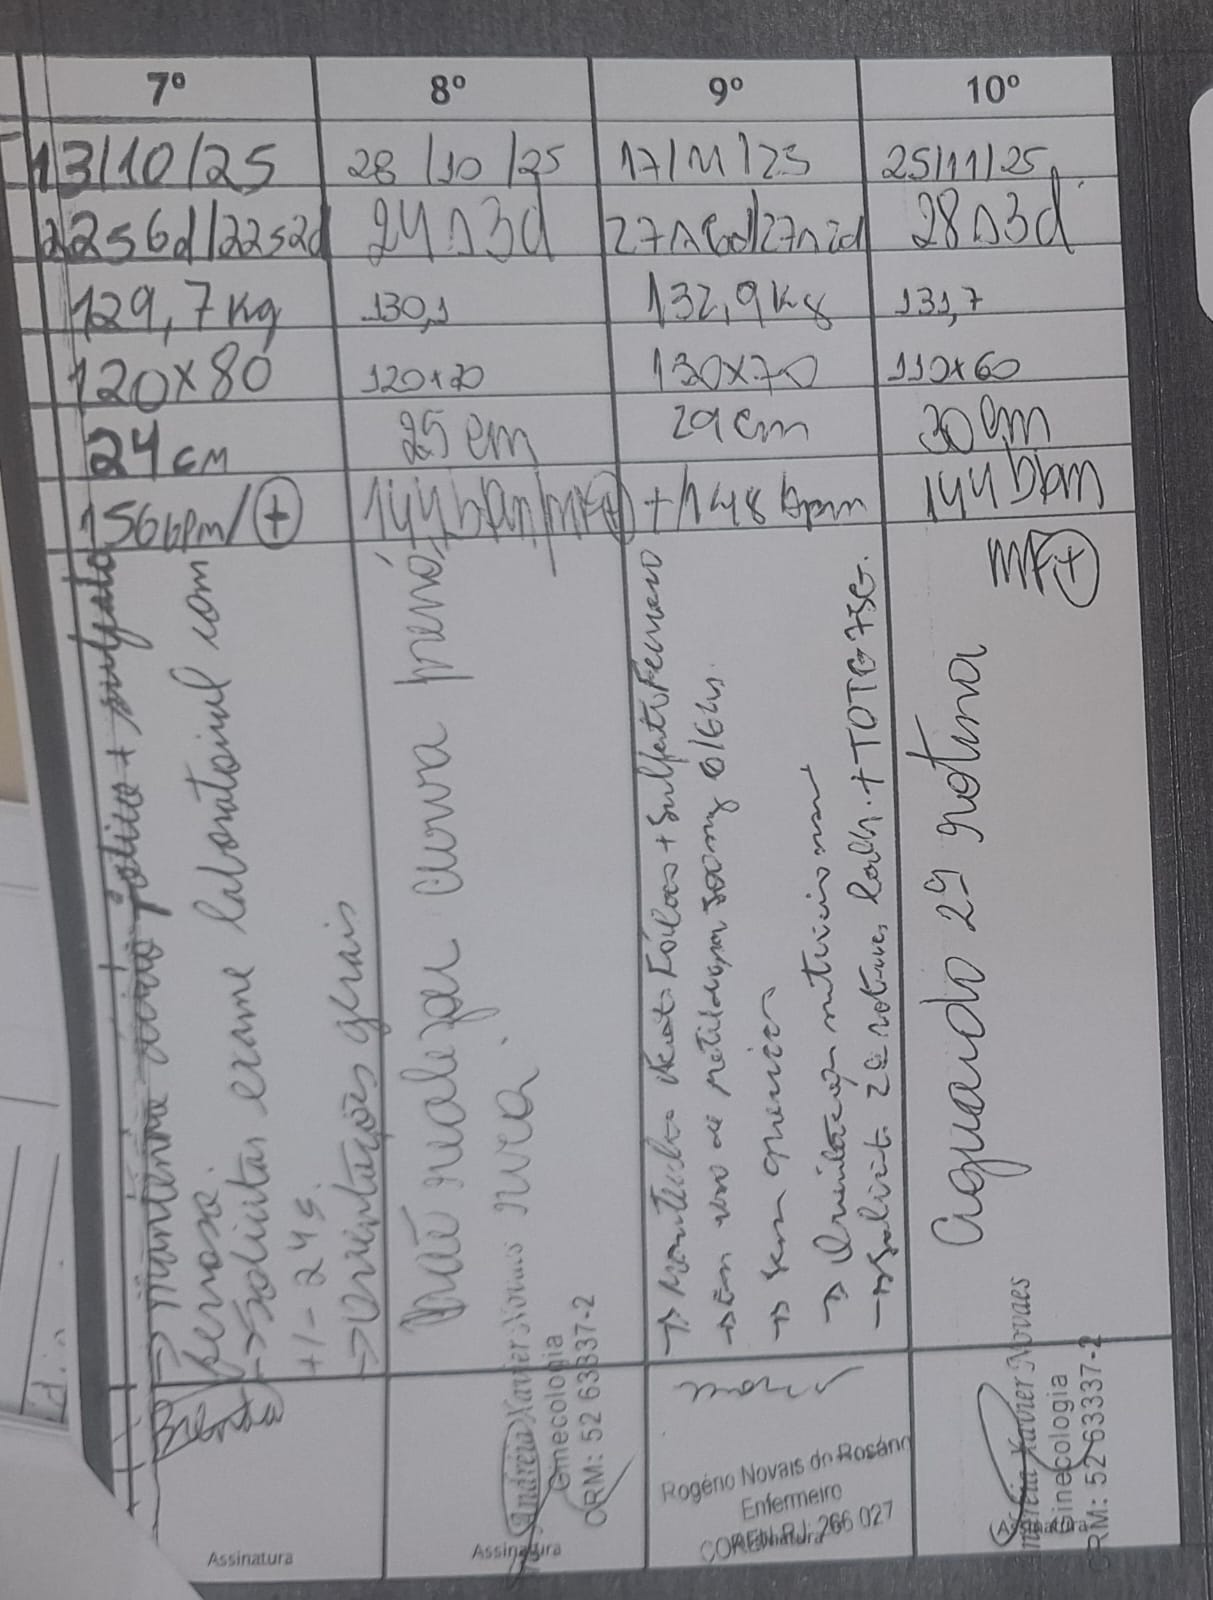 7º 8º 9º 10º
13/10/25 28/10/25 17/11/25 25/11/25
22s6d/22s2d 24s3d 27s6d/27s2d 28s3d
129,7kg 130,1 132,9kg 131,7
120x80 120x70 130x70 110x60
24cm 25cm 29cm 30cm
156bpm/+ 144bpm/MF+ +/148bpm 144bpm
MF+
→ mantenho ácido fólico + sulfato
ferroso.
→ solicitar exame laboratorial com
+/- 24s.
→ orientações gerais
Não realizar curva
→ + Sulfato Ferroso
→ Em uso de metildopa 500mg 6/6hs.
→ sem queixas
→ Orientação
→ Solicit. 2ª rotina + TOTG 75G.
aguardo 2ª rotina
Andréia Xavier Novaes
Ginecologia
CRM: 52 63337-2
Assinatura
Assinatura
Rogério Novais do Rosário
Enfermeiro
COREN-RJ: 266 027
Xavier Novaes
Ginecologia
CRM: 52 63337-2